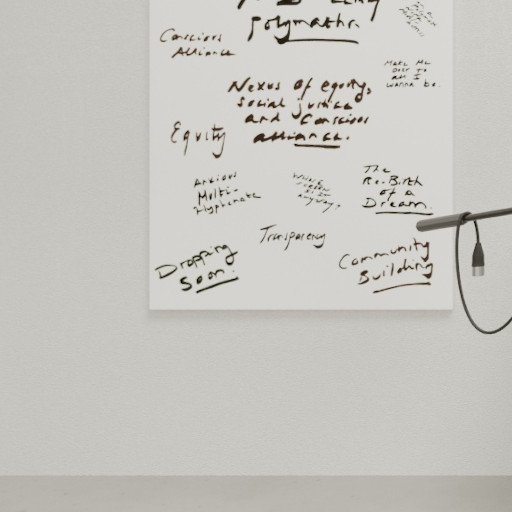 polymath.
Conscious
Alliance
Make Me
wanna be.
Nexus of equity,
social justice
and Conscious
alliance.
Equity
Anxious
Multi-
Hyphenate
anyway?
The
Re-Birth
of a
Dream.
Transparency
Dropping
Soon.
Community
Building